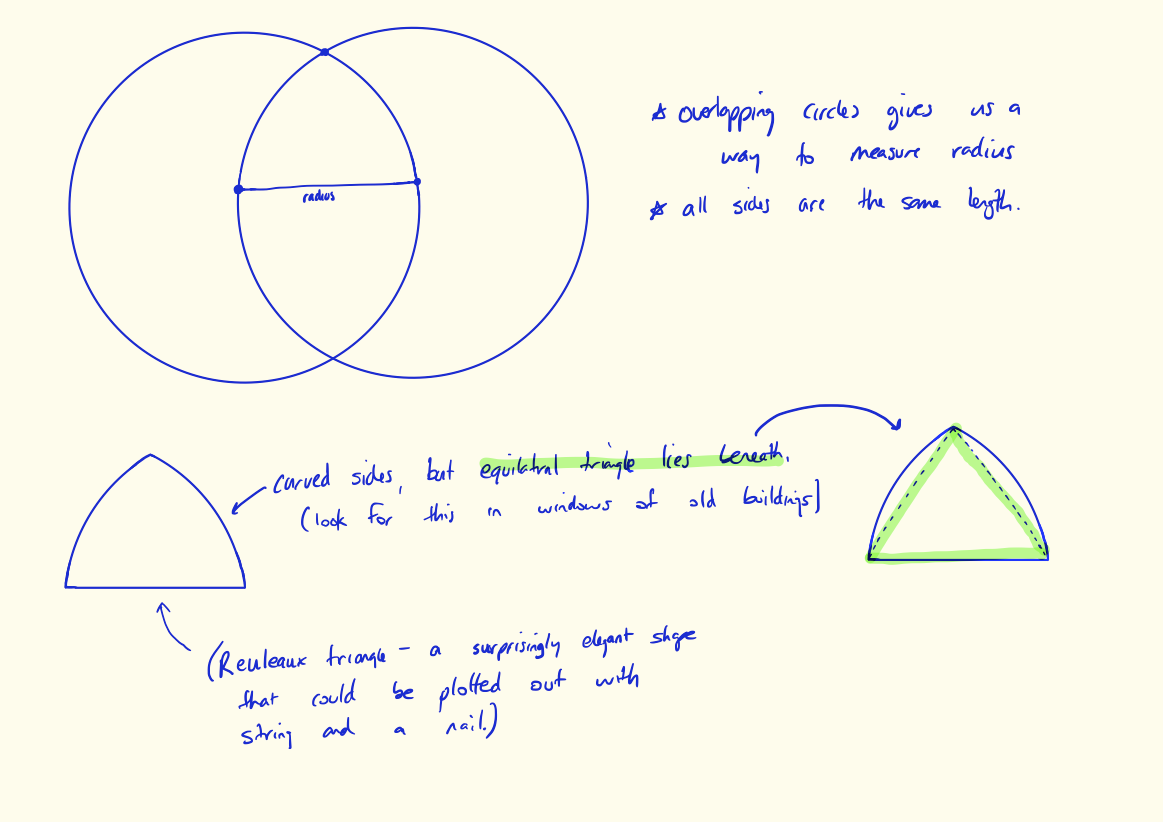 ☆ overlapping circles gives us a
way to measure radius
radius
☆ all sides are the same length.
curved sides, but equilatral triangle lies beneath.
(look for this in windows of old buildings)
(Reuleaux triangle – a surprisingly elegant shape
that could be plotted out with
string and a nail.)